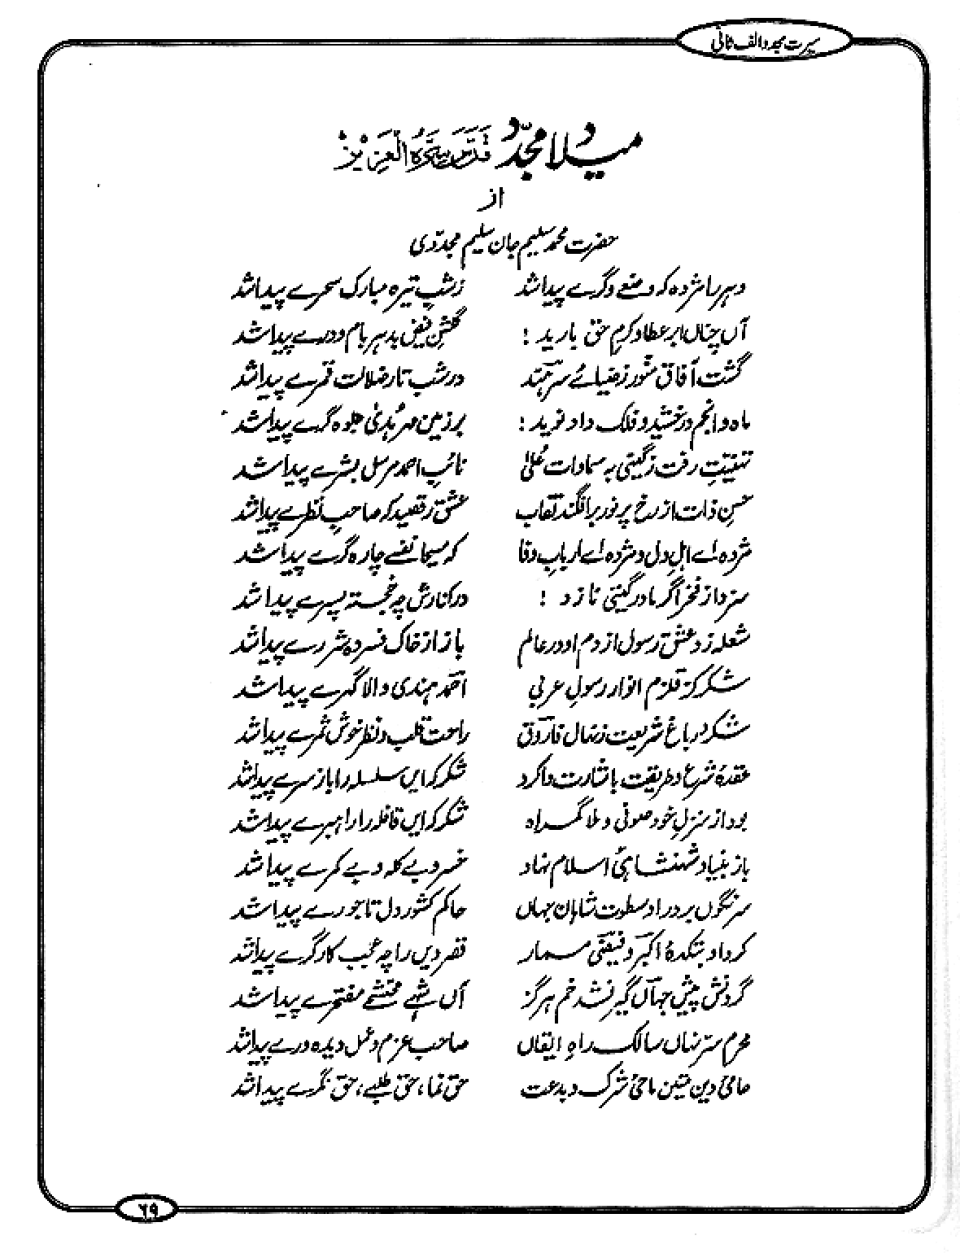 سیرت مجدد الف ثانی
میلاد مجدّد قَدَّسَ سِرَّهُ الْعَزِيز
از
حضرت محمد سلیم جان سلیم مجدّدی
دہر را مژدہ کہ وضعِ دگرے پیدا شد زشبِ تیرہ مبارک سحرے پیدا شد
آں چناں ابرِ عطا و کرمِ حق بارید : گلشنِ فیض بدہر بام و درے پیدا شد
گشت آفاق منور زضیائے سرہند در شبِ تارِ ضلالت قمرے پیدا شد
ماہ و انجم درخشید و فلک داد نوید : بر زمین مہرِ ہُدیٰ جلوہ گرے پیدا شد
تہنیت رفت زگیتی بہ سماوات عُلیٰ نائبِ احمد مرسل بشرے پیدا شد
حسنِ ذات از رخِ پرنور برافگند نقاب عشق رقصید کہ صاحبِ نظرے پیدا شد
مژدہ اے اہلِ دل و مژدہ اے اربابِ وفا کہ مسیحا نفسے چارہ گرے پیدا شد
سزد از فخر اگر مادرِ گیتی نازد : در کنارش چہ خجستہ پسرے پیدا شد
شعلہ زد عشقِ رسول از دم او در عالم باز از خاک فسردہ شررے پیدا شد
شکر کز قلزم انوار رسولِ عربی احمد ہندی والا گہرے پیدا شد
شکر در باغِ شریعت زنہالِ فاروق راحت قلب و نظر خوش ثمرے پیدا شد
عقدۂ شرع و طریقت باشارت وا کرد شکر کہ ایں سلسلہ را باز سرے پیدا شد
بود از منزلِ خود صوفی و ملا گمراہ شکر کہ ایں قافلہ را راہبرے پیدا شد
باز بنیاد شہنشاہیٔ اسلام نہاد خسروے بے کلہ و بے کمرے پیدا شد
سرنگوں بر در او سطوت شاہان جہاں حاکم کشورِ دل تاجورے پیدا شد
کرد او بتکدۂ اکبر و فیضی مسمار قصرِ دیں را چہ عجب کارگرے پیدا شد
گردنش پیشِ جہاں گیر نشد خم ہرگز آں شہے محتشمے مفتخرے پیدا شد
محرم سرّ نہاں سالک راہِ ایقاں صاحب عزم و عمل دیدہ ورے پیدا شد
حامیٔ دین متین ماحیٔ شرک و بدعت حق نما، حق طلبے، حق نگرے پیدا شد
٦٩